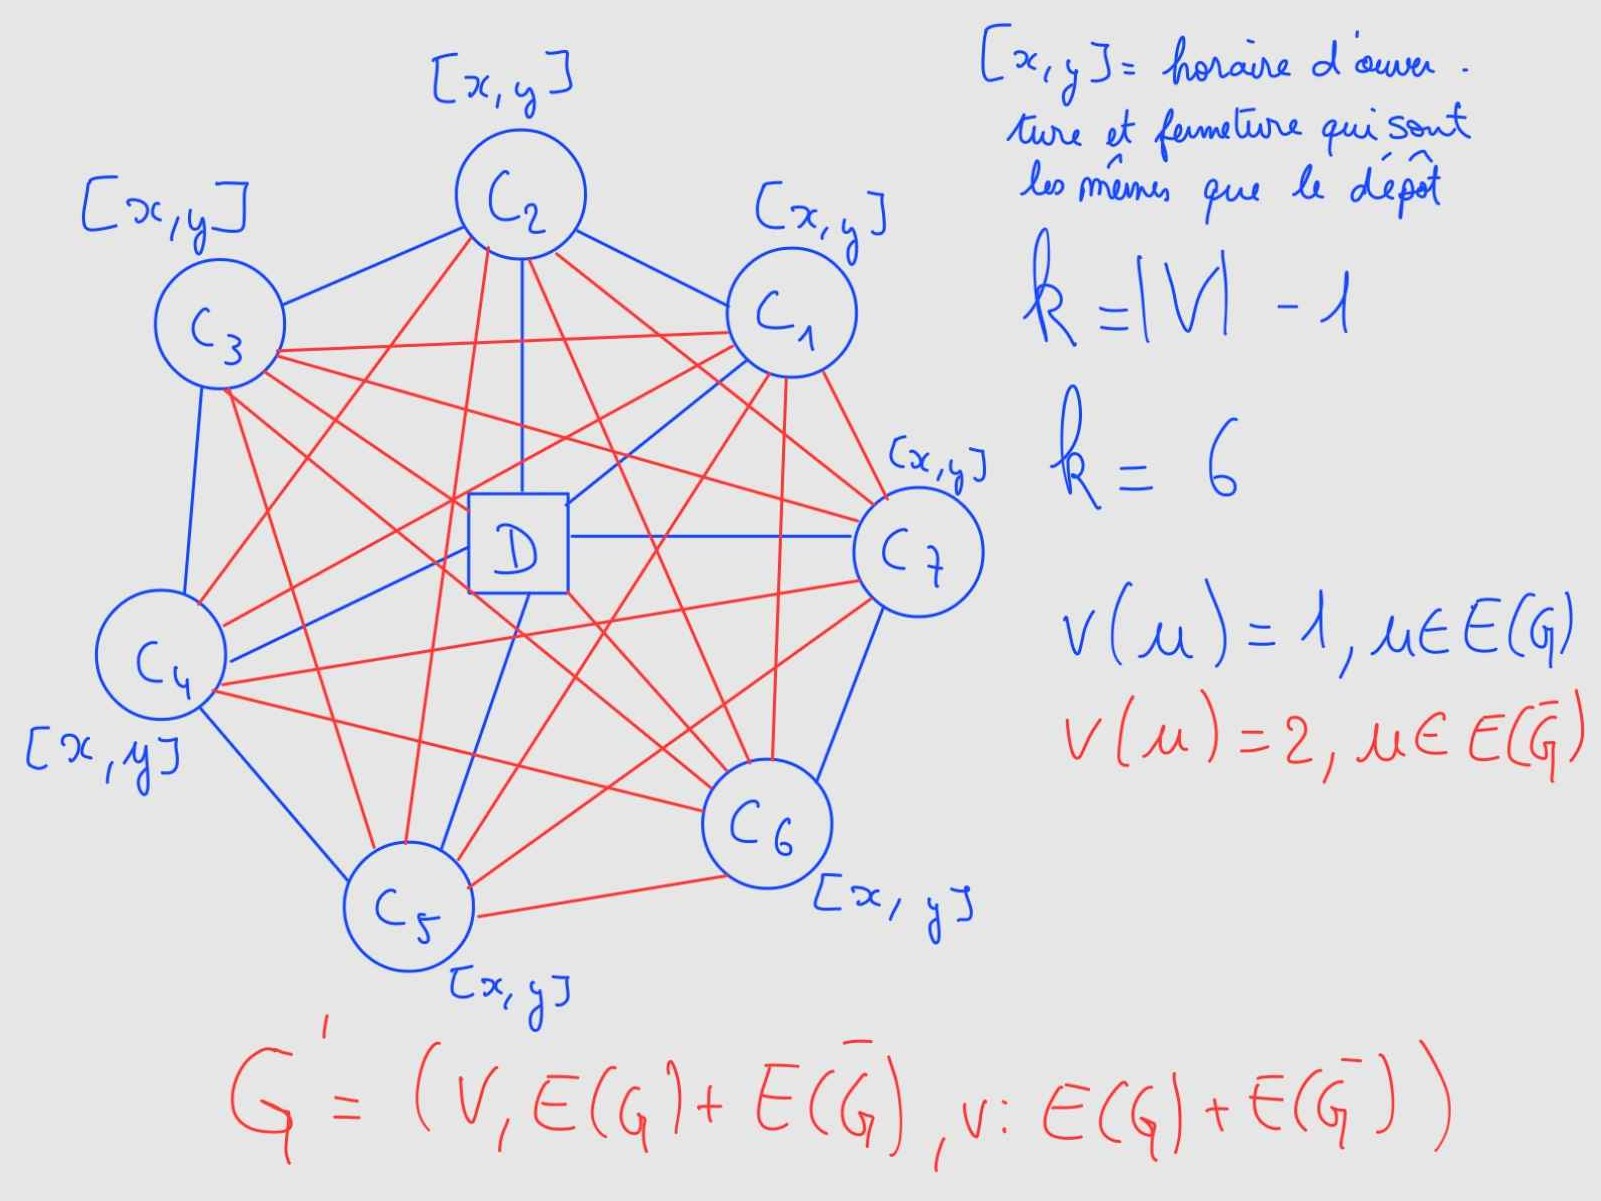 [x,y]
[x,y]
[x,y]
C2
C3
C1
[x,y]
D
C7
C4
[x,y]
C6
C5
[x,y]
[x,y]
[x,y] = horaire d'ouver-
ture et fermeture qui sont
les mêmes que le dépôt
k = |V| - 1
k = 6
v(u) = 1, u ∈ E(G)
v(u) = 2, u ∈ E(Ḡ)
G' = (V, E(G) + E(Ḡ), v: E(G) + E(Ḡ))